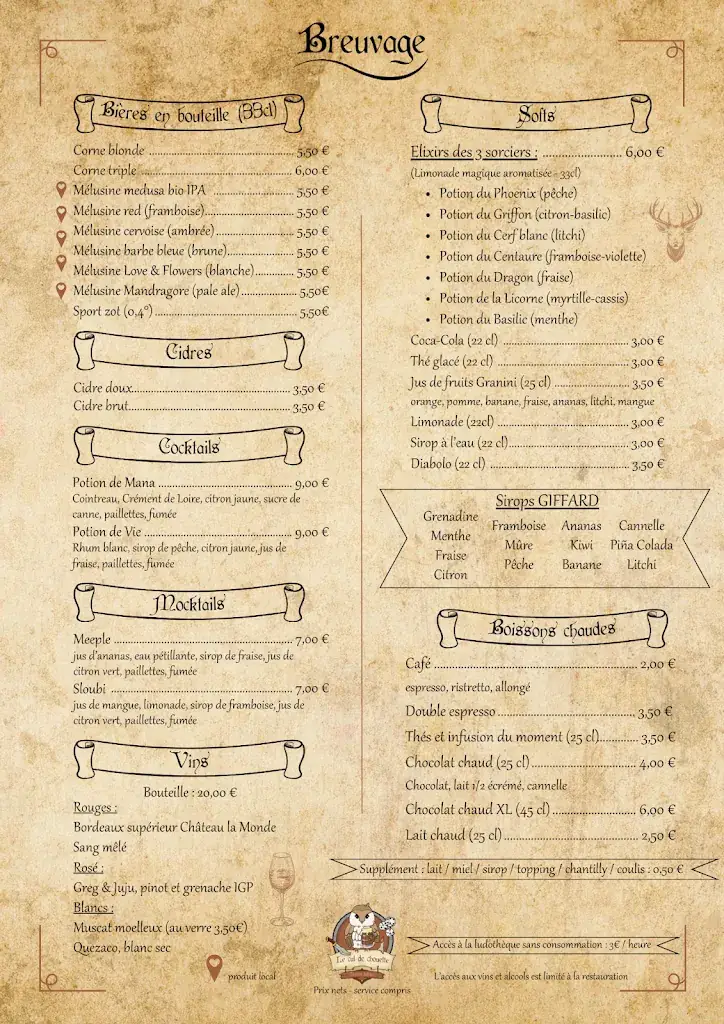 Breuvage
Bières en bouteille (33cl)
Corne blonde ........ 5,50 €
Corne triple ........ 6,00 €
Mélusine medusa bio IPA ........ 5,50 €
Mélusine red (framboise)........ 5,50 €
Mélusine cervoise (ambrée) ........ 5,50 €
Mélusine barbe bleue (brune)........ 5,50 €
Mélusine Love & Flowers (blanche)........ 5,50 €
Mélusine Mandragore (pale ale)........ 5,50€
Sport zot (0,4°) ........ 5,50€
Cidres
Cidre doux........ 3,50 €
Cidre brut........ 3,50 €
Cocktails
Potion de Mana ........ 9,00 €
Cointreau, Crément de Loire, citron jaune, sucre de
canne, paillettes, fumée
Potion de Vie ........ 9,00 €
Rhum blanc, sirop de pêche, citron jaune, jus de
fraise, paillettes, fumée
Mocktails
Meeple ........ 7,00 €
jus d'ananas, eau pétillante, sirop de fraise, jus de
citron vert, paillettes, fumée
Sloubi ........ 7,00 €
jus de mangue, limonade, sirop de framboise, jus de
citron vert, paillettes, fumée
Vins
Bouteille : 20,00 €
Rouges :
Bordeaux supérieur Château la Monde
Sang mêlé
Rosé :
Greg & Juju, pinot et grenache IGP
Blancs :
Muscat moelleux (au verre 3,50€)
Quezaco, blanc sec
produit local
Softs
Elixirs des 3 sorciers : ........ 6,00 €
(Limonade magique aromatisée - 33cl)
• Potion du Phoenix (pêche)
• Potion du Griffon (citron-basilic)
• Potion du Cerf blanc (litchi)
• Potion du Centaure (framboise-violette)
• Potion du Dragon (fraise)
• Potion de la Licorne (myrtille-cassis)
• Potion du Basilic (menthe)
Coca-Cola (22 cl) ........ 3,00 €
Thé glacé (22 cl) ........ 3,00 €
Jus de fruits Granini (25 cl) ........ 3,50 €
orange, pomme, banane, fraise, ananas, litchi, mangue
Limonade (22cl) ........ 3,00 €
Sirop à l'eau (22 cl)........ 3,00 €
Diabolo (22 cl) ........ 3,50 €
Sirops GIFFARD
Grenadine
Menthe
Fraise
Citron
Framboise
Mûre
Pêche
Ananas
Kiwi
Banane
Cannelle
Piña Colada
Litchi
Boissons chaudes
Café ........ 2,00 €
espresso, ristretto, allongé
Double espresso ........ 3,50 €
Thés et infusion du moment (25 cl)........ 3,50 €
Chocolat chaud (25 cl) ........ 4,00 €
Chocolat, lait 1/2 écrémé, cannelle
Chocolat chaud XL (45 cl) ........ 6,00 €
Lait chaud (25 cl)........ 2,50 €
Supplément : lait / miel / sirop / topping / chantilly / coulis : 0,50 €
Accès à la ludothèque sans consommation : 3€ / heure
L'accès aux vins et alcools est limité à la restauration
Le val de chouette
Prix nets - service compris